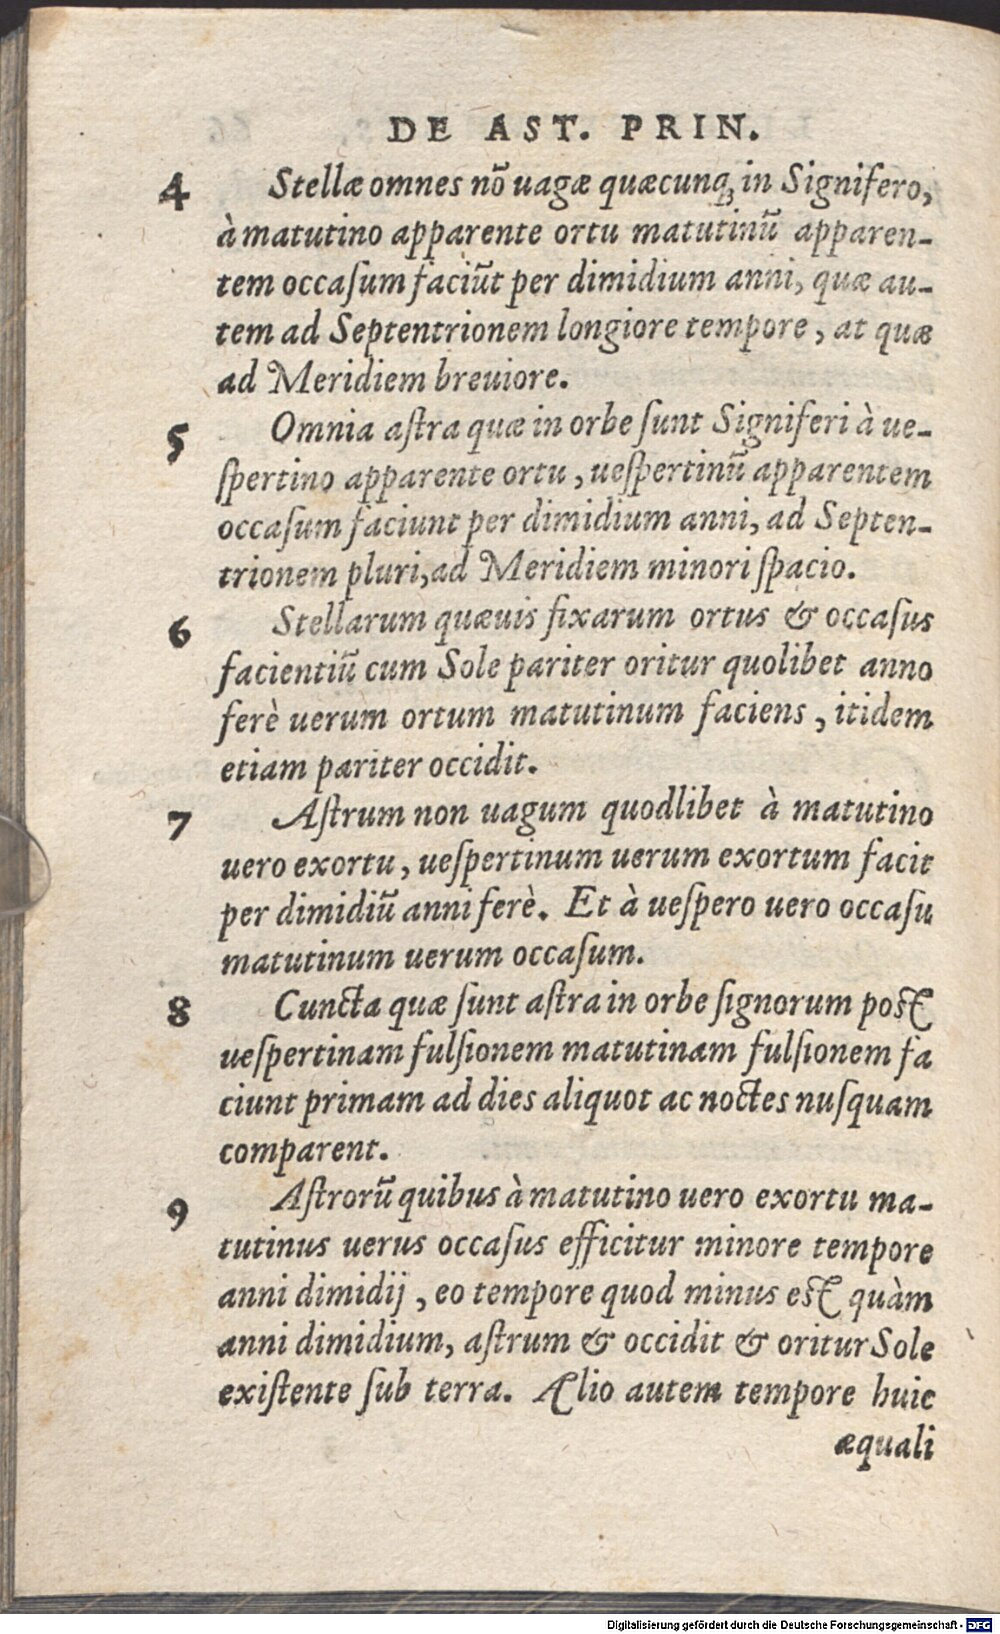 DE AST. PRIN.
4 Stellæ omnes nõ uagæ quæcunqꝫ in Signifero,
à matutino apparente ortu matutinũ apparen-
tem occaſum faciũt per dimidium anni, quæ au-
tem ad Septentrionem longiore tempore, at quæ
ad Meridiem breuiore.
5 Omnia aſtra quæ in orbe ſunt Signiferi à ue-
ſpertino apparente ortu, ueſpertinũ apparentem
occaſum faciunt per dimidium anni, ad Septen-
trionem pluri, ad Meridiem minori ſpacio.
6 Stellarum quæuis fixarum ortus & occaſus
facientiũ cum Sole pariter oritur quolibet anno
ferè uerum ortum matutinum faciens, itidem
etiam pariter occidit.
7 Aſtrum non uagum quodlibet à matutino
uero exortu, ueſpertinum uerum exortum facit
per dimidiũ anni ferè. Et à ueſpero uero occaſu
matutinum uerum occaſum.
8 Cuncta quæ ſunt aſtra in orbe ſignorum poſt
ueſpertinam fulſionem matutinam fulſionem fa
ciunt primam ad dies aliquot ac noctes nuſquam
comparent.
9 Aſtrorũ quibus à matutino uero exortu ma-
tutinus uerus occaſus efficitur minore tempore
anni dimidij, eo tempore quod minus eſt quàm
anni dimidium, aſtrum & occidit & oritur Sole
exiſtente ſub terra. Ælio autem tempore huic
æquali
Digitalisierung gefördert durch die Deutsche Forschungsgemeinschaft - DFG